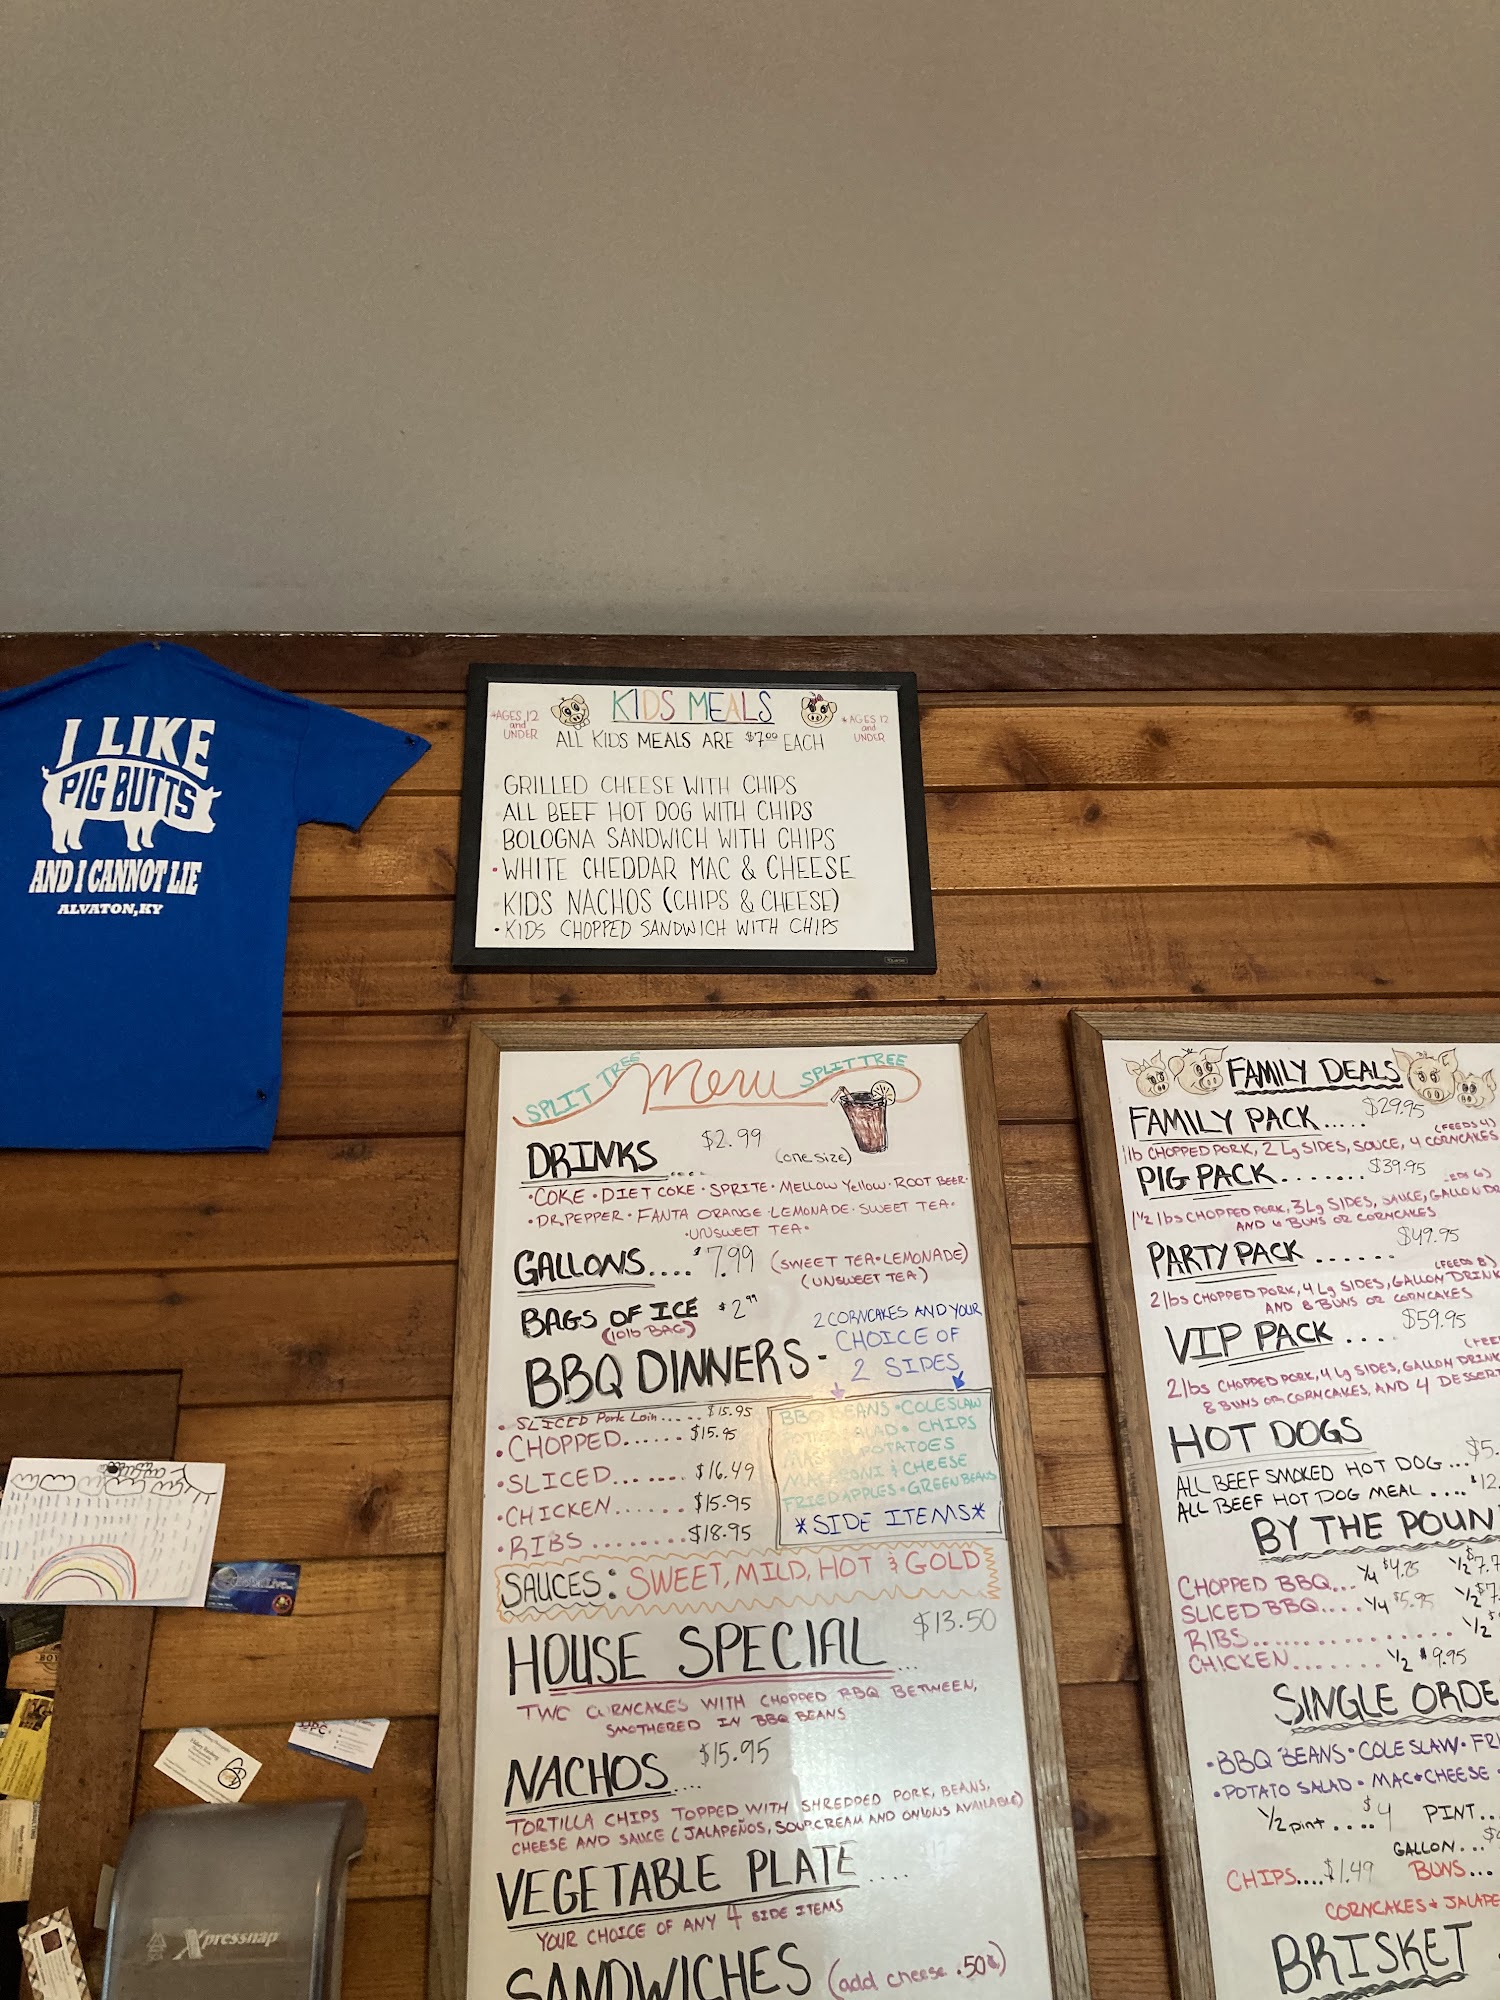 I LIKE
PIG BUTTS
AND I CANNOT LIE
ALVATON, KY
KIDS MEALS
*AGES 12 and UNDER
*AGES 12 and UNDER
ALL KIDS MEALS ARE $7.00 EACH
GRILLED CHEESE WITH CHIPS
ALL BEEF HOT DOG WITH CHIPS
BOLOGNA SANDWICH WITH CHIPS
• WHITE CHEDDAR MAC & CHEESE
KIDS NACHOS (CHIPS & CHEESE)
• KIDS CHOPPED SANDWICH WITH CHIPS
SPLIT TREE Menu SPLIT TREE
DRINKS.... $2.99 (one size)
• COKE • DIET COKE • SPRITE • MELLOW YELLOW • ROOT BEER •
• DR. PEPPER • FANTA ORANGE • LEMONADE • SWEET TEA •
• UNSWEET TEA •
GALLONS.... $7.99 (SWEET TEA • LEMONADE)
(UNSWEET TEA)
BAGS OF ICE $2.99
(10lb BAG)
BBQ DINNERS - 2 CORNCAKES AND YOUR
CHOICE OF
2 SIDES
• SLICED Pork Loin..... $15.95
• CHOPPED...... $15.95
• SLICED....... $16.49
• CHICKEN...... $15.95
• RIBS......... $18.95
BBQ BEANS • COLESLAW
POTATO SALAD • CHIPS
MASHED POTATOES
MACARONI & CHEESE
FRIED APPLES • GREEN BEANS
*SIDE ITEMS*
SAUCES: SWEET, MILD, HOT & GOLD
HOUSE SPECIAL... $13.50
TWO CORNCAKES WITH CHOPPED BBQ BETWEEN,
SMOTHERED IN BBQ BEANS
NACHOS.... $15.95
TORTILLA CHIPS TOPPED WITH SHREDDED PORK, BEANS,
CHEESE AND SAUCE (JALAPEÑOS, SOUR CREAM AND ONIONS AVAILABLE)
VEGETABLE PLATE....
YOUR CHOICE OF ANY 4 SIDE ITEMS
SANDWICHES (add cheese .50¢)
FAMILY DEALS
FAMILY PACK..... $29.95
(FEEDS 4)
1lb CHOPPED PORK, 2 Lg SIDES, SAUCE, 4 CORNCAKES
PIG PACK....... $39.95
1½ lbs CHOPPED PORK, 3 Lg SIDES, SAUCE, GALLON DR
AND 6 BUNS OR CORNCAKES
PARTY PACK...... $49.95
(FEEDS 8)
2lbs CHOPPED PORK, 4 Lg SIDES, GALLON DRINK
AND 8 BUNS OR CORNCAKES
VIP PACK.... $59.95
2lbs CHOPPED PORK, 4 Lg SIDES, GALLON DRINK
8 BUNS OR CORNCAKES, AND 4 DESSERT
HOT DOGS
ALL BEEF SMOKED HOT DOG... $5.
ALL BEEF HOT DOG MEAL.... $12.
BY THE POUN
CHOPPED BBQ... ¼ $4.25 ½ $7.7
SLICED BBQ.... ¼ $5.95 ½ $7
RIBS................ ½ $
CHICKEN....... ½ $9.95
SINGLE ORDE
• BBQ BEANS • COLE SLAW • FRI
• POTATO SALAD • MAC & CHEESE •
½ pint.... $4 PINT...
GALLON...
CHIPS.... $1.49 BUNS...
CORNCAKES & JALAPE
BRISKET
Xpressnap